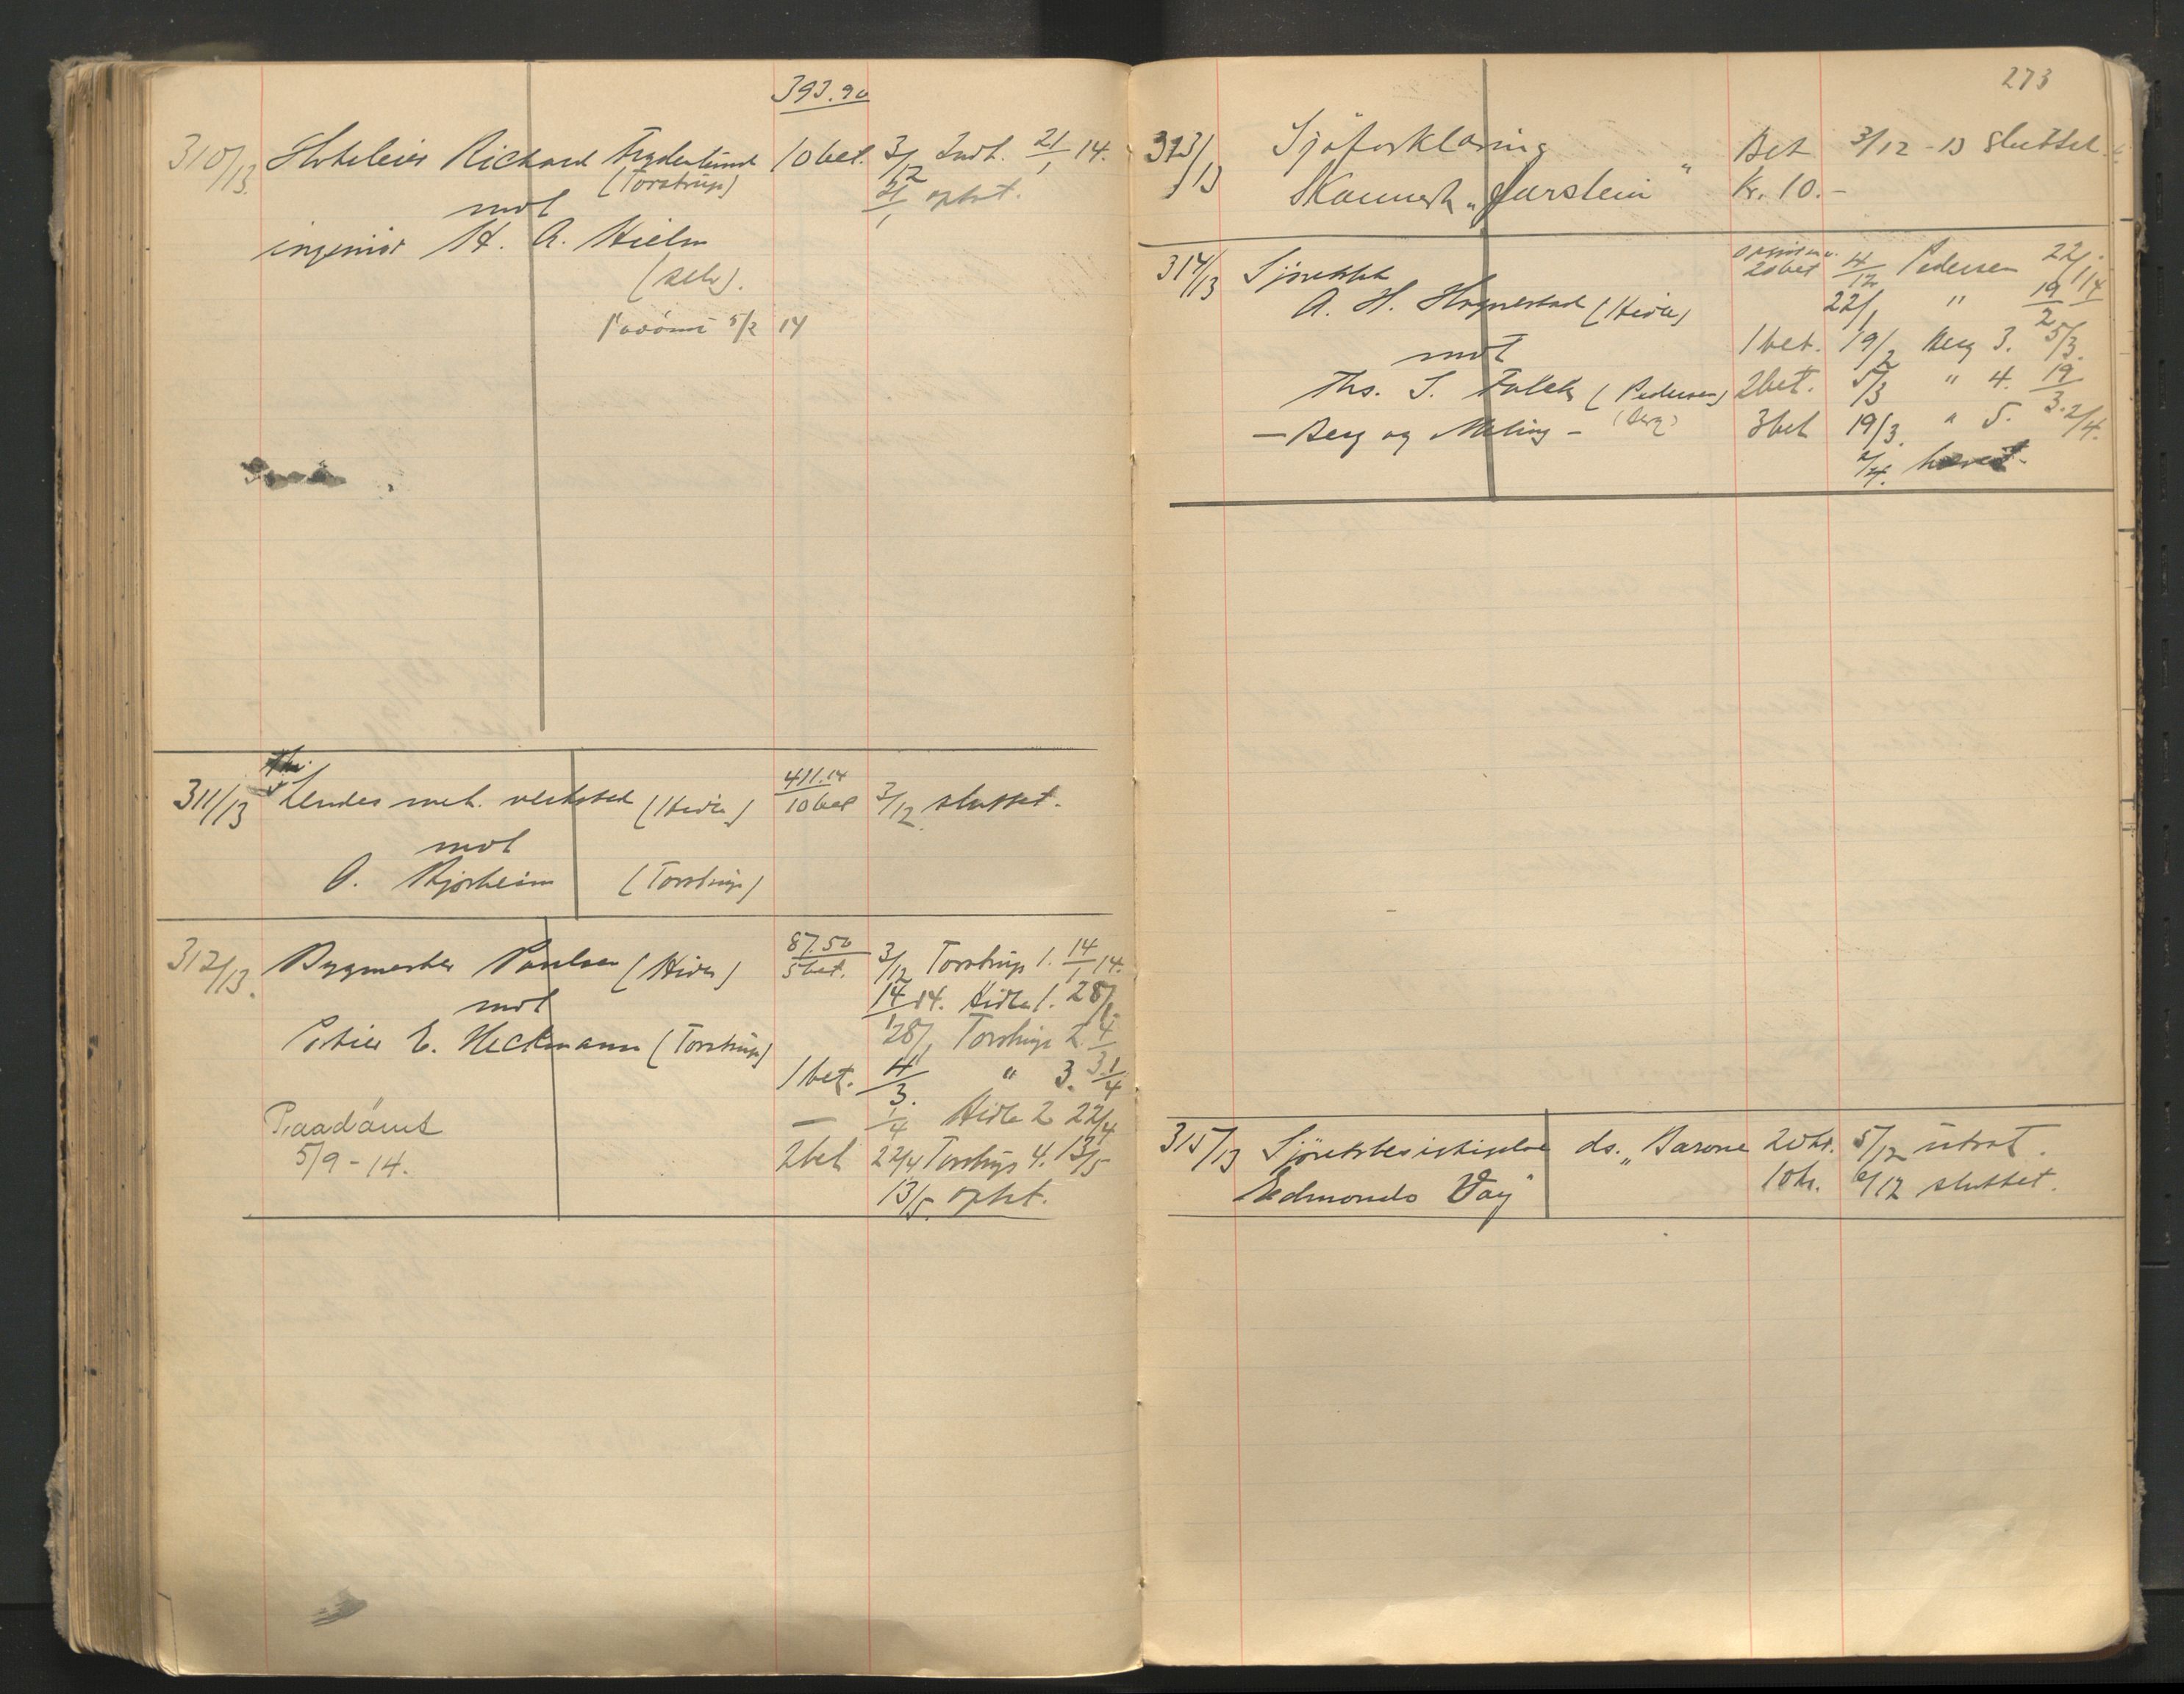 393.90
310/13. Hoteleier Richard Frydenlund 10 bet. 3/12 Indt. 21/1 14.
(Torstrup) 21/1 opt.
mot
ingeniør H. A. Hielm
(selv).
Paadömt 5/2 14
311/13 Lendes mek. verksted (Hidle) 411.14 10 bet 3/12 sluttet.
mot
O. (Torstrup)
312/13. Bygmester Paulsen (Hidle) 87.50 5 bet. 3/12 Torstrup 1. 14/1 14.
mot 14/1 14. Hidle 1. 28/1
E. Heckmann (Torstrup) 28/1 Torstrup 2 4/3
1 bet. 4/3. " 3. 1/4
Paadömt — 1/4 Hidle 2 22/4
5/9 - 14. 2 bet 22/4 Torstrup 4. 13/5
13/5. opt.
273
313/13 Sjöforklaring Bet 3/12 - 13 sluttet.
" Kr. 10.-
314/13 Sjørettssak 20 bet 4/12 Pedersen 22/1 14
A. H. Hognestad (Hidle) 22/1 " 19/2
mot 1 bet. 19/2 Berg 3. 5/3.
Ths. S. Falck (Pedersen) 2 bet. 5/3 " 4. 19/3.
— Berg og Meling — (Berg) 3 bet 19/3. " 5. 2/4.
2/4. hævet.
315/13 Sjörettsbesigtigelse ds. „Barone 20 kr. 5/12 utsat.
Edmondo Vay" 10 kr. 6/12 sluttet.